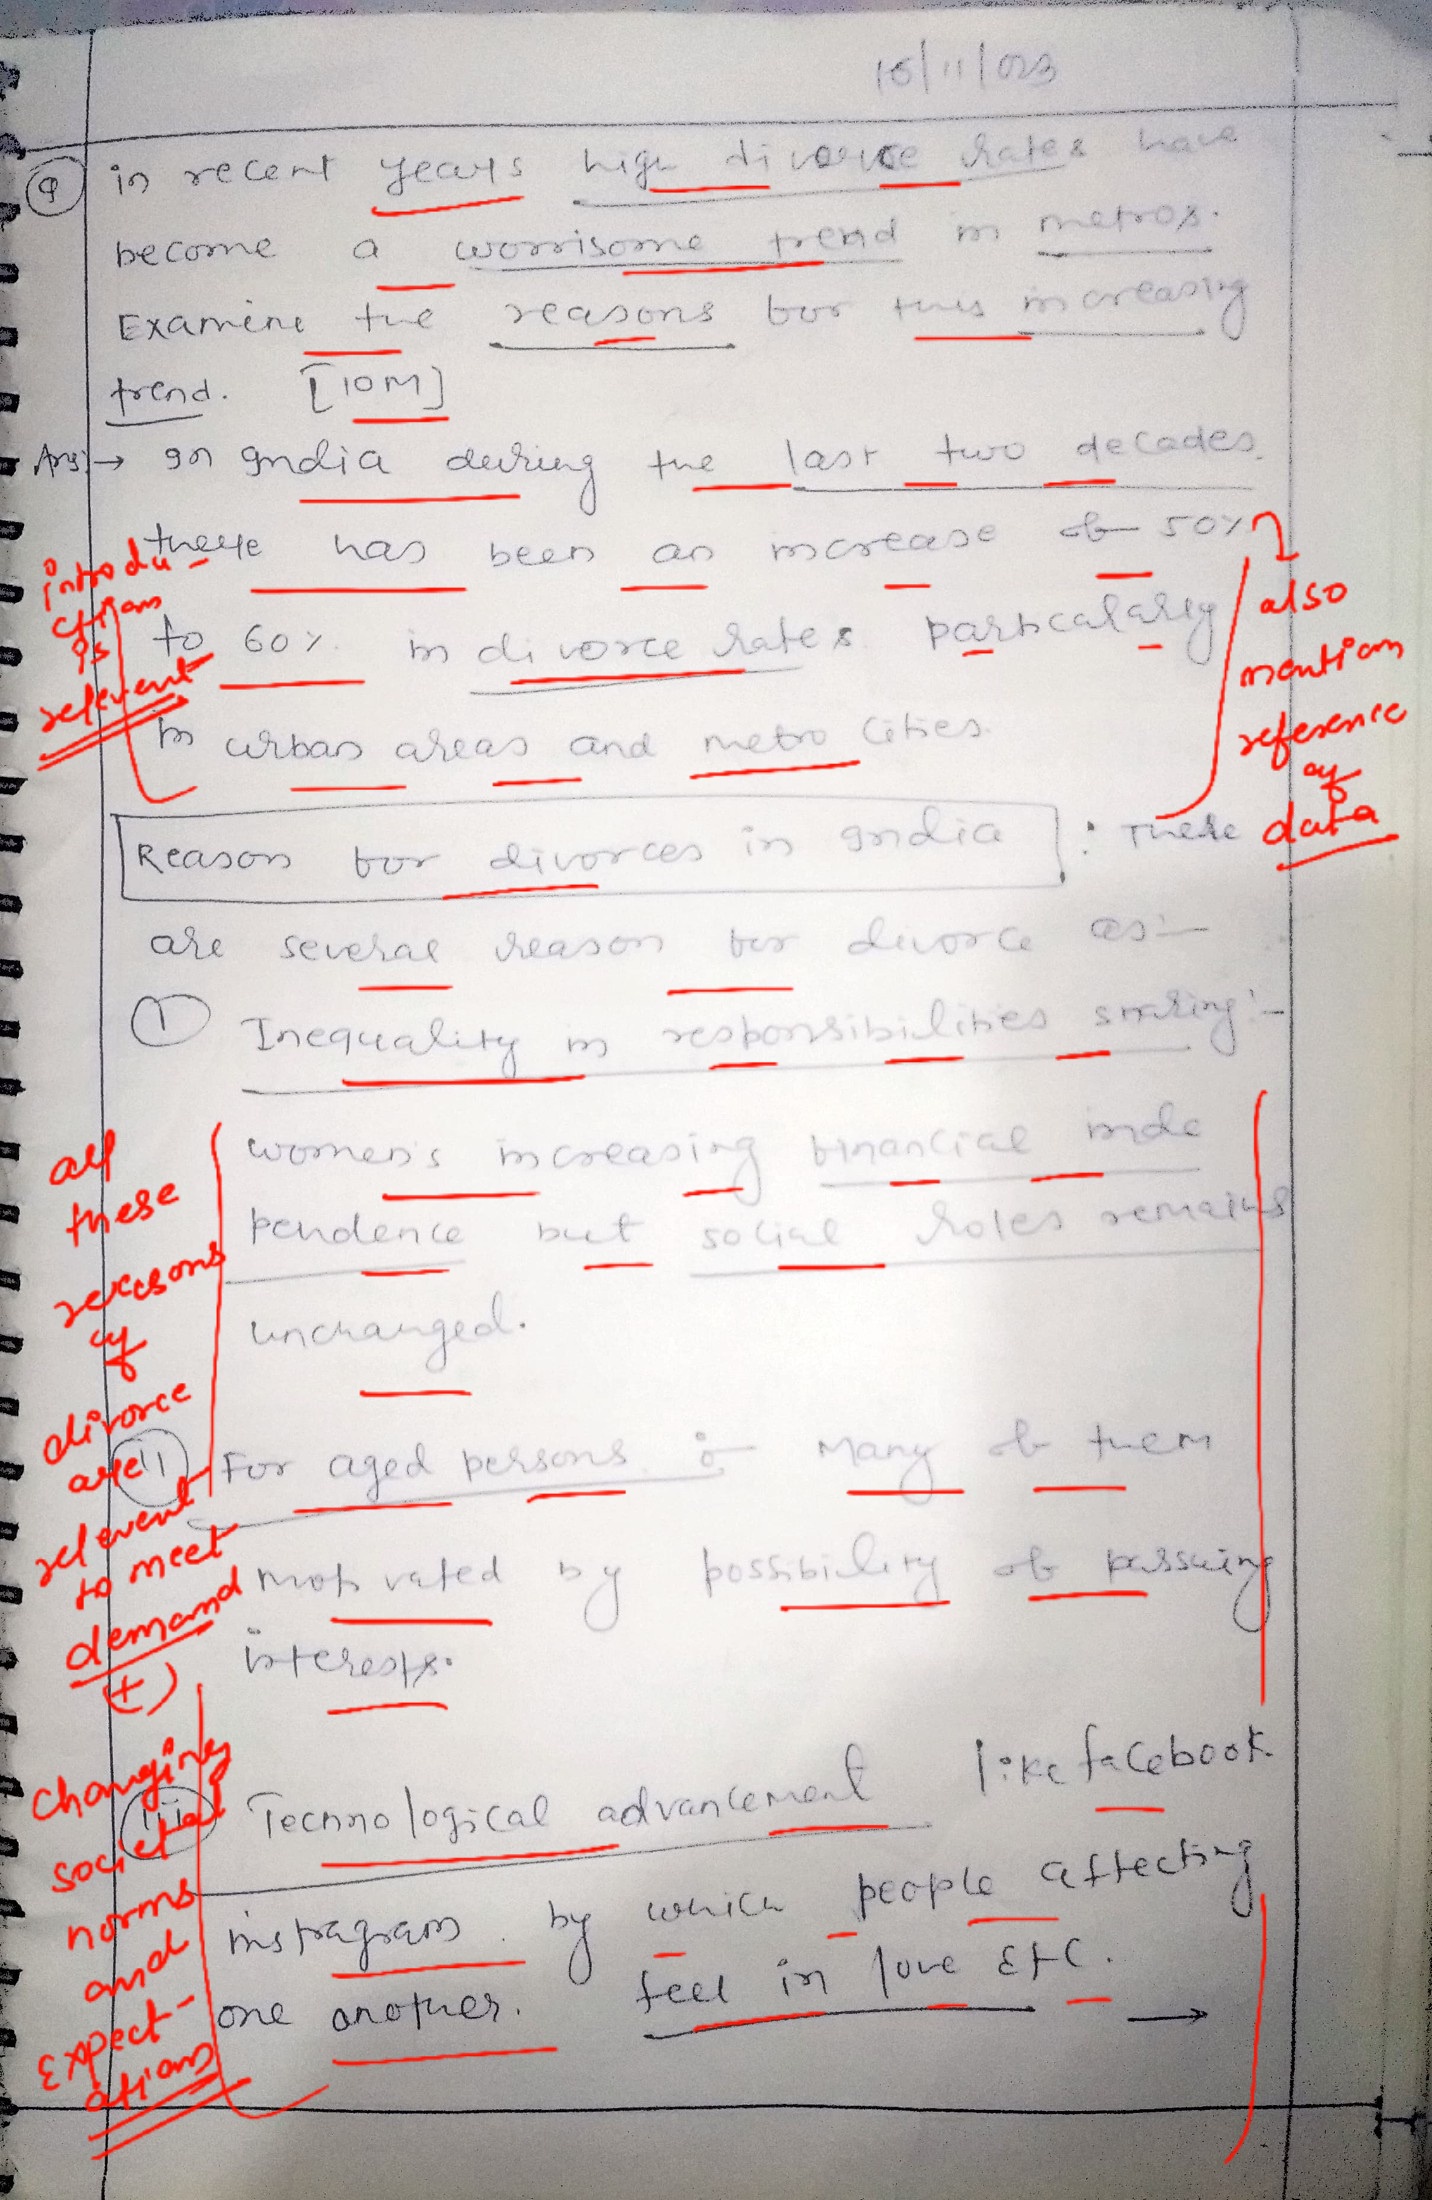 16/11/023
Q in recent years high divorce rates have
become a worrisome trend in metros.
Examine the reasons for this increasing
trend. [10M]
Ans:→ In India during the last two decades.
there has been an increase of 50%
to 60% in divorce rates particalarly
in urban areas and metro cities.
introdu-
ction
is
relevent
also
mention
reference
of
data
Reason for divorces in India : There
are several reason for divorce as:-
I Inequality in responsibilities sharing:-
women's increasing financial inde
pendence but social roles remains
unchanged.
ii) For aged persons : Many of them
motivated by possibility of persuing
interests.
all
these
reasons
of
divorce
are
relevent
to meet
demand
(+)
iii Technological advancement like facebook
instragram by which people affecting
one another. feel in love Etc. →
Changing
societal
norms
and
Expect-
ations